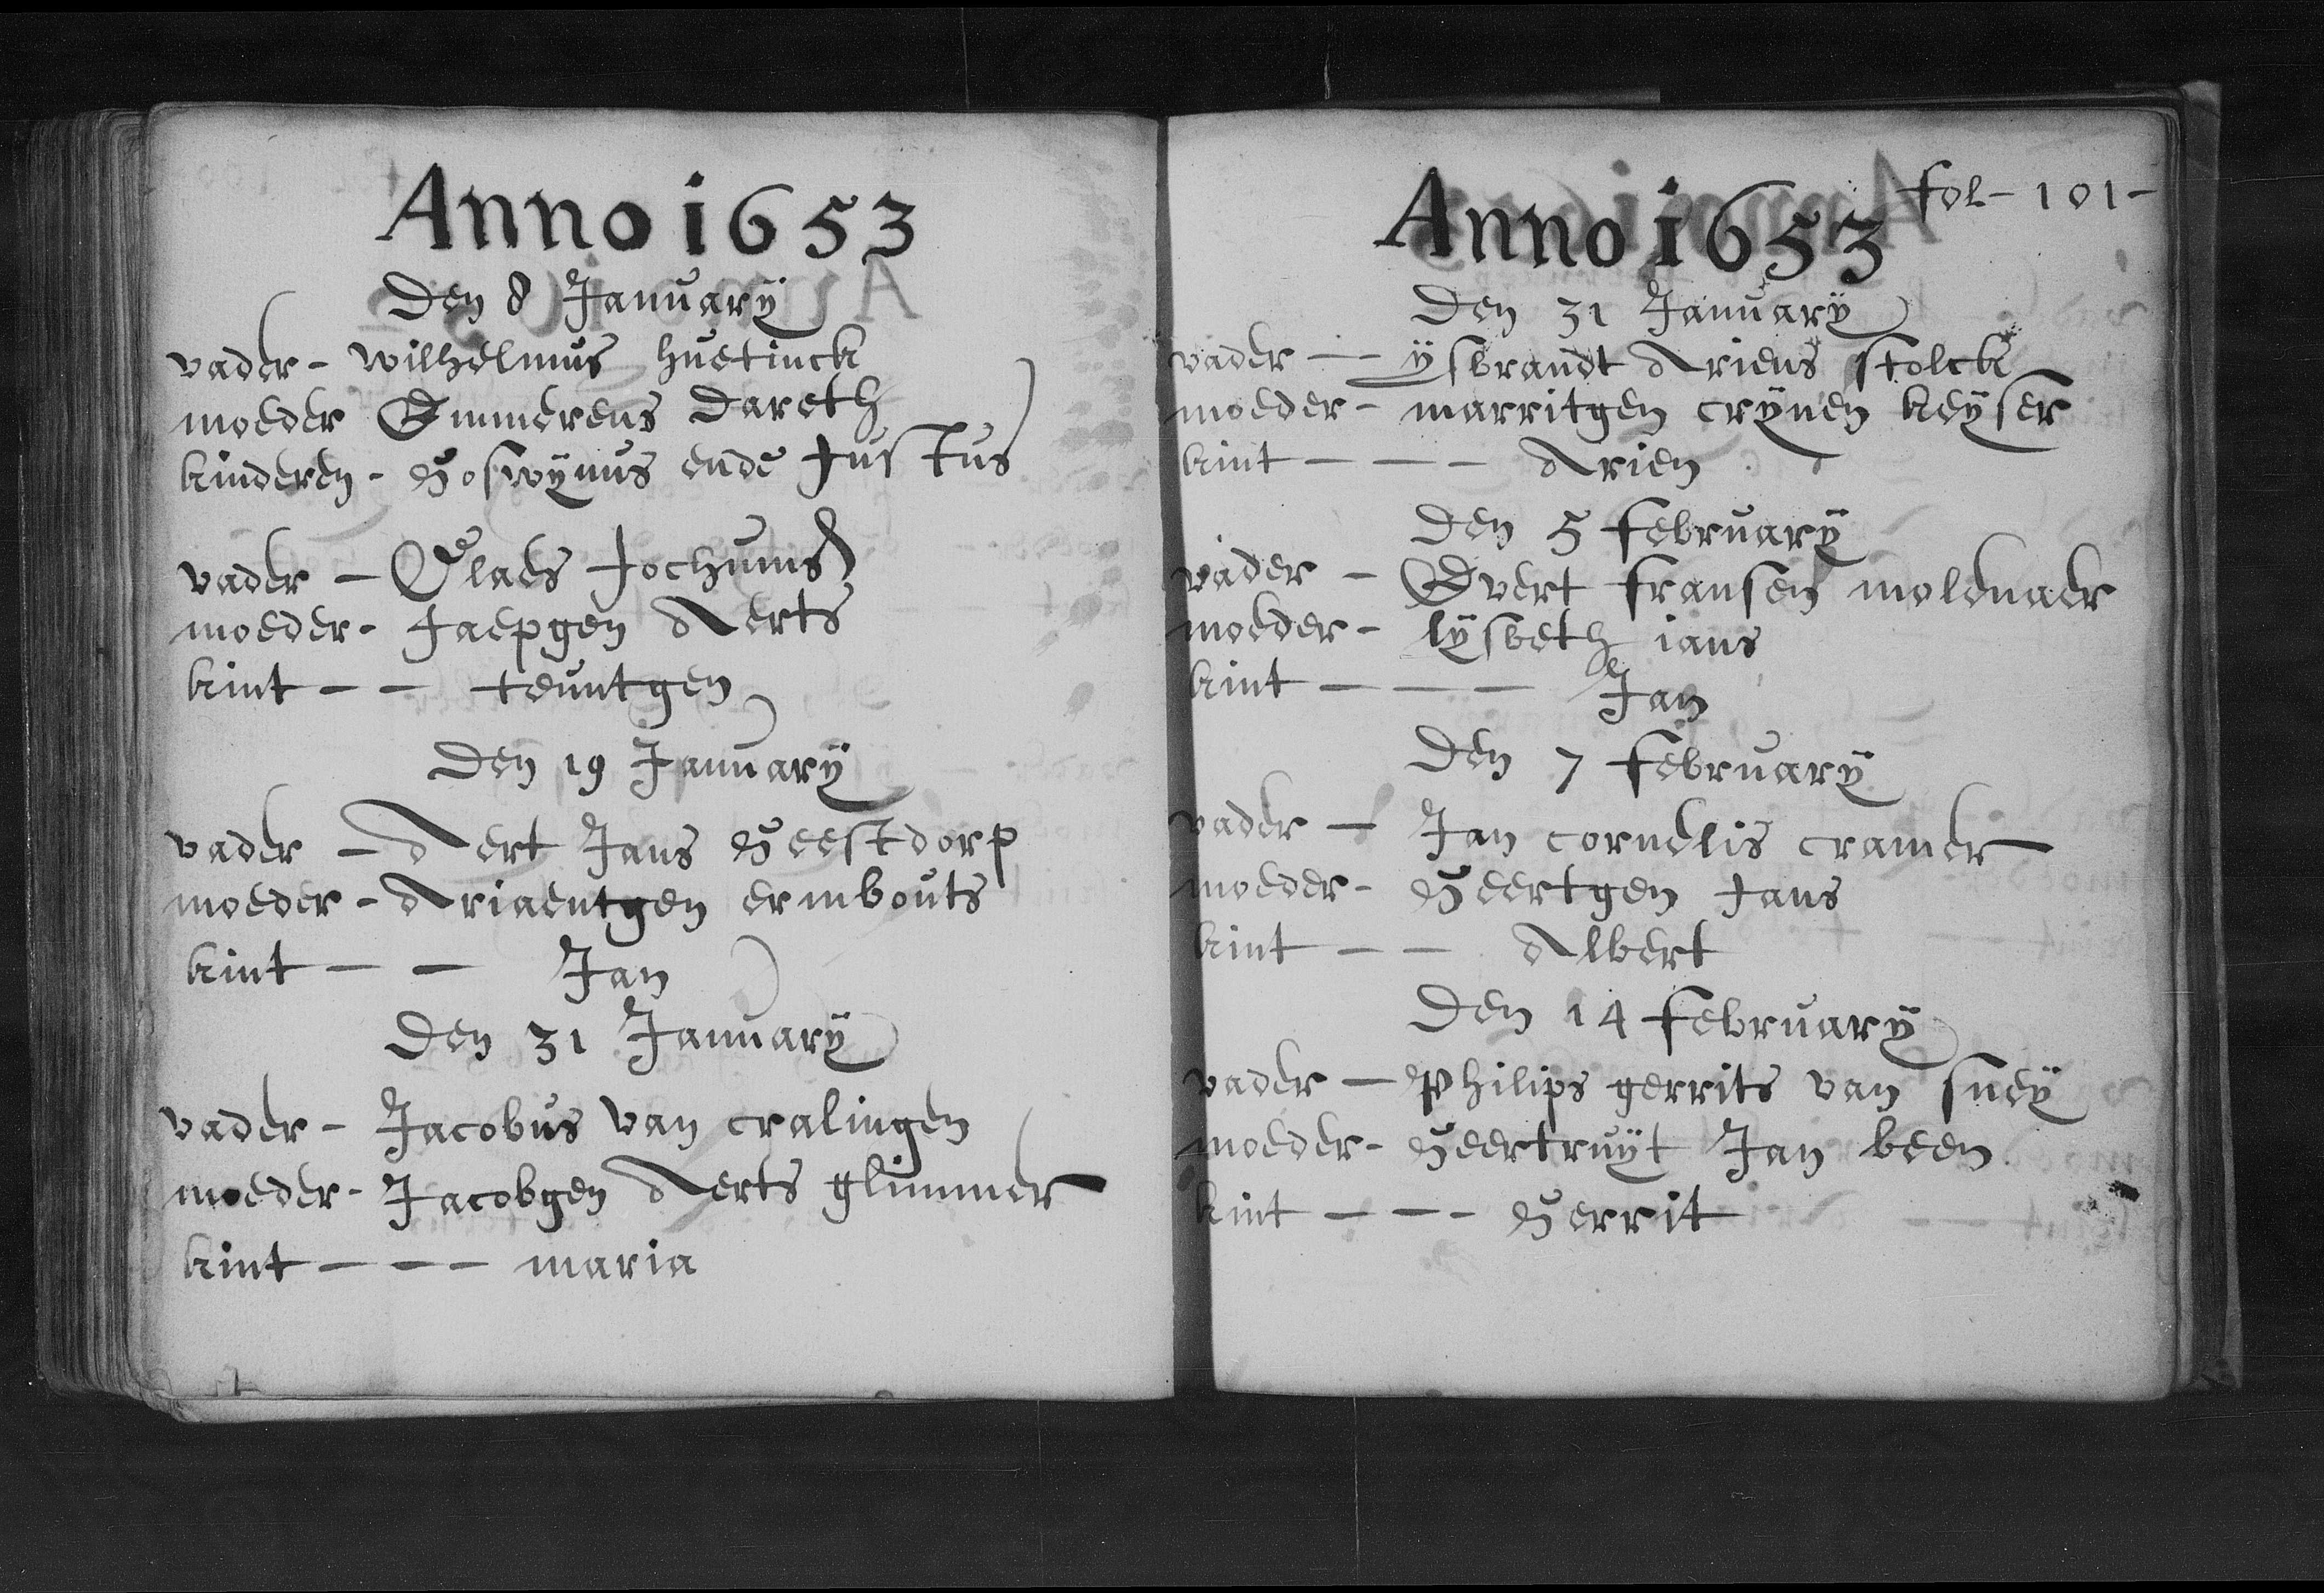 Anno 1653
Den 8 Januarÿ
vader - wilhelmus huetinck
moeder Emmerens dareth
kinderen - Goswÿnus ende Justus
vader - Claes Jochums
moeder - Jaepgen Aerts
kint - - teuntgen
Den 19 Januarÿ
vader - Aert Jans Geestdorp
moeder - Ariaentgen ermbouts
kint - - Jan
Den 31 Januarÿ
vader - Jacobus van cralingen
moeder - Jacobgen Aerts glimmer
kint - - - maria
fol - 101 -
Anno 1653
Den 31 Januarÿ
vader - ÿsbrandt Ariens stolck
moeder - marritgen crÿnen keÿser
kint - - - Arien
Den 5 februarÿ
vader - Evert fransen molenaer
moeder - lÿsbeth ians
kint - - - Jan
Den 7 februarÿ
vader - Jan cornelis cramer
moeder - Geertgen Jans
kint - - Albert
Den 14 februarÿ
vader - Philips gerrits van sneÿ
moeder - Geertruÿt Jan been
kint - - - Gerrit